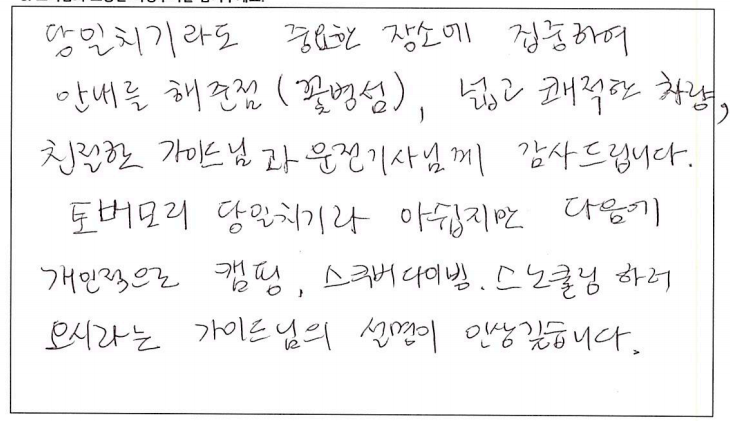 당일치기라도 중요한 장소에 집중하여
안내를 해준점 (꽃병섬), 넓고 쾌적한 차량,
친절한 가이드님과 운전기사님께 감사드립니다.
토버모리 당일치기라 아쉽지만 다음에
개인적으로 캠핑, 스쿠버다이빙. 스노쿨링 하러
오시라는 가이드님의 설명이 인상깊습니다.